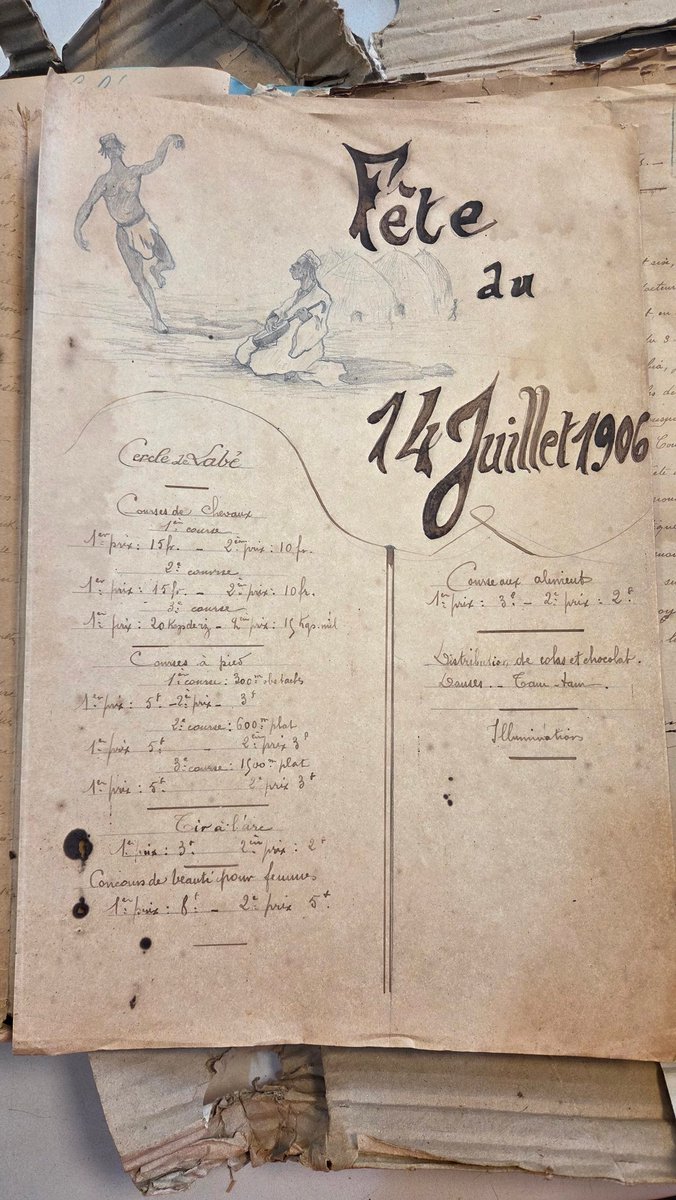 Fête
au
14 Juillet 1906
Cercle de Labé
Courses de chevaux
1ère course
1er prix : 15 fr. – 2ème prix : 10 fr.
2e course
1er prix : 15 fr. – 2ème prix : 10 fr.
3e course
1er prix : 20 Kgs de riz – 2ème prix : 15 Kgs. mil
Courses à pied
1ère course : 300m obstacles
1er prix : 5f – 2e prix – 3f
2e course : 600m plat
1er prix 5f – 2ème prix 3f
3e course : 1500m plat
1er prix : 5f 2e prix 3f
Tir à l'arc
1er prix : 3f 2ème prix : 2f
Concours de beauté pour femmes
1er prix : 8f – 2e prix 5f
Course aux
1er prix : 3f – 2e prix : 2f
Distribution de colas et chocolat.
Danses – Tam-tam.
Illuminations